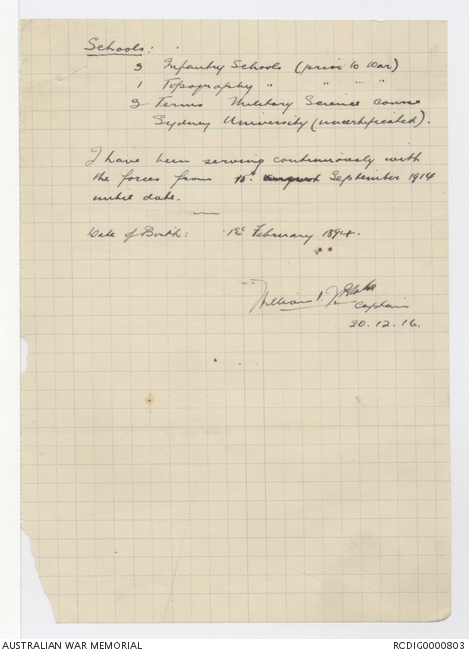 Schools:
3 Infantry Schools (prior to war)
1 Topography " " " "
3 Terms Military Science Course
Sydney University (uncertificated).
I have been serving continuously with
the forces from 15th August September 1914
until date.
Date of Birth: 1st February 1894.
William
Captain
20.12.16.
AUSTRALIAN WAR MEMORIAL
RCDIG0000803